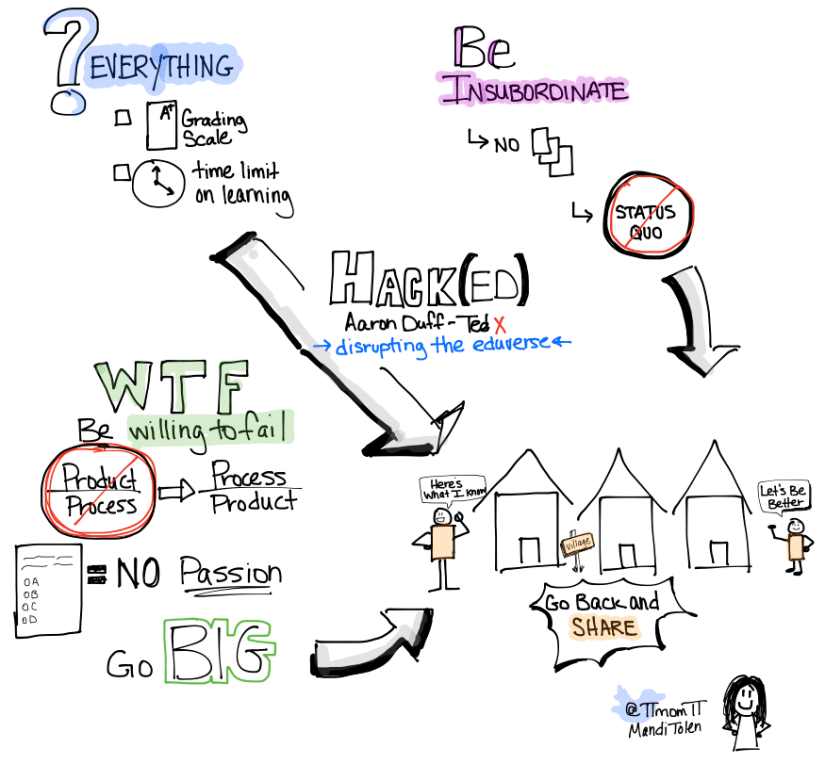 ? EVERYTHING
A+ Grading
Scale
time limit
on learning
Be
INSUBORDINATE
NO
STATUS
QUO
HACK(ED)
Aaron Duff - Ted X
disrupting the eduverse
WTF
Be willing to fail
Product
Process
Process
Product
A
B
C
D
= NO Passion
Go BIG
Here's
What I know
village
Let's Be
Better
Go Back and
SHARE
@TTmomTT
Mandi Tolen